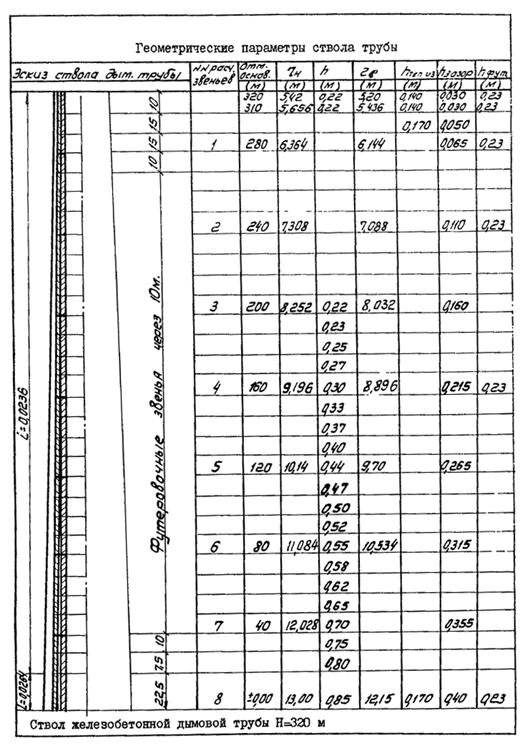 Геометрические параметры ствола трубы
Эскиз ствола дым. трубы №№ расч. звеньев Отм. основ. (м) rн (м) h (м) rв (м) hтеп из (м) hзазор (м) hфут (м)
320 5,42 0,22 5,20 0,140 0,030 0,23
310 5,656 0,22 5,436 0,140 0,030 0,23
0,170 0,050
1 280 6,364 6,144 0,065 0,23
2 240 7,308 7,088 0,110 0,23
3 200 8,252 0,22 8,032 0,160
0,23
0,25
0,27
4 160 9,196 0,30 8,896 0,215 0,23
0,33
0,37
0,40
5 120 10,14 0,44 9,70 0,265
0,47
0,50
0,52
6 80 11,084 0,55 10,534 0,315
0,58
0,62
0,65
7 40 12,028 0,70 0,355
0,75
0,80
8 ±0,00 13,00 0,85 12,15 0,170 0,40 0,23
10
15
15
10
Футеровочные звенья через 10м.
10
7,5
22,5
i=0,0236
i=0,0264
Ствол железобетонной дымовой трубы Н=320 м